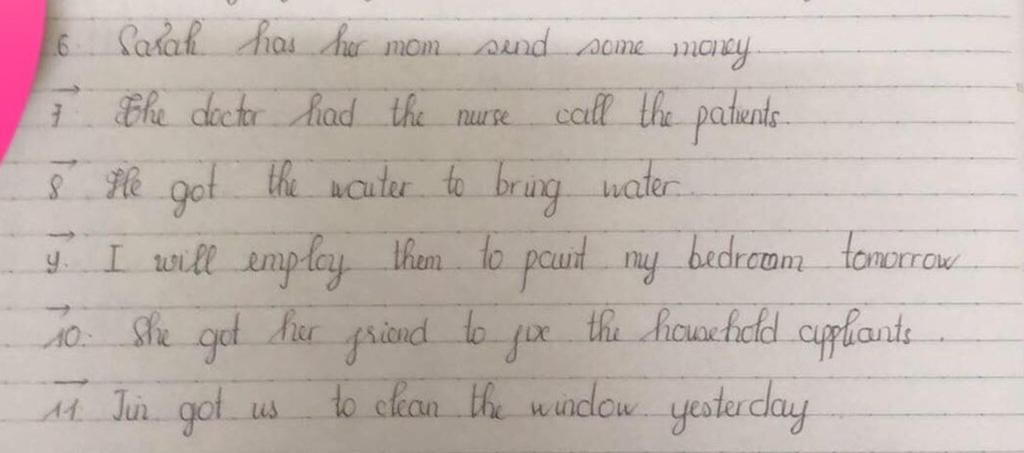 6. Sarah has her mom send some money.
→ 7. The doctor had the nurse call the patients.
→ 8. He got the waiter to bring water.
→ 9. I will employ them to paint my bedroom tomorrow
→ 10. She got her friend to fix the household appliants.
→ 11. Jin got us to clean the window yesterday